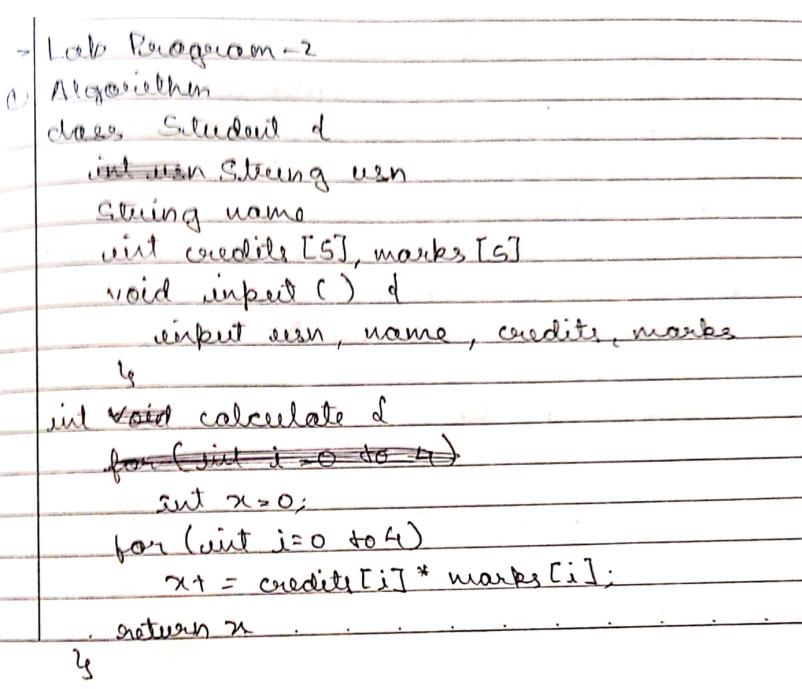 - Lab Program - 2
① Algorithm
class Student {
int usn String usn
String name
int credits [5], marks [5]
void input () {
input usn, name, credits, marks
}
int void calculate {
for (int i = 0 to 4)
int x = 0;
for (int i=0 to 4)
x+ = credits [i] * marks [i];
return x
}